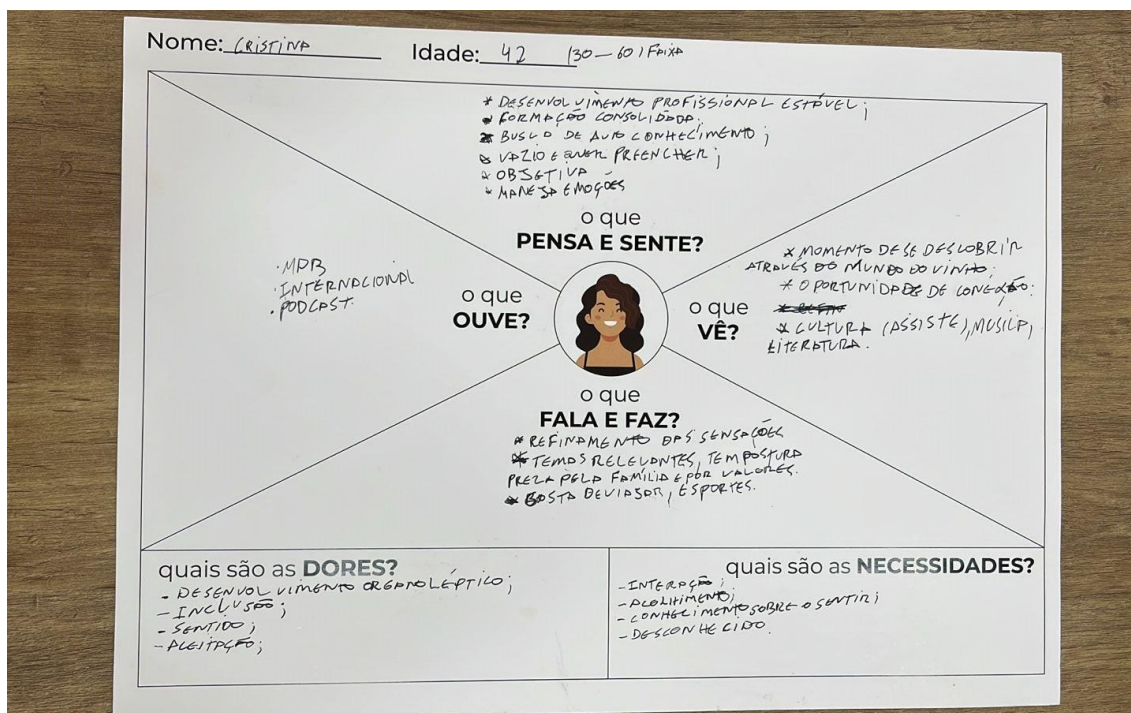 Nome: CRISTINA Idade: 42 (30 – 60) FAIXA
* DESENVOLVIMENTO PROFISSIONAL ESTÁVEL;
* FORMAÇÃO CONSOLIDADA;
* BUSCA DE AUTO CONHECIMENTO;
* VAZIO E QUER PREENCHER;
* OBJETIVA
* MANEJA EMOÇÕES
o que
PENSA E SENTE?
· MPB
· INTERNACIONAL
· PODCAST.
o que
OUVE?
o que
VÊ?
* MOMENTO DE SE DESCOBRIR
ATRAVÉS DO MUNDO DO VINHO;
* OPORTUNIDADES DE CONEXÃO;
* CULTURA (ASSISTE), MUSICA,
LITERATURA.
o que
FALA E FAZ?
* REFINAMENTO DAS SENSAÇÕES
* TEMAS RELEVANTES, TEM POSTURA
PREZA PELA FAMÍLIA E POR VALORES.
* GOSTA DE VIAJAR, ESPORTES.
quais são as DORES?
- DESENVOLVIMENTO ORGANOLÉPTICO;
- INCLUSÃO;
- SENTIDO;
- ACEITAÇÃO;
quais são as NECESSIDADES?
- INTERAÇÃO;
- ACOLHIMENTO;
- CONHECIMENTO SOBRE O SENTIR;
- DESCONHECIDO.